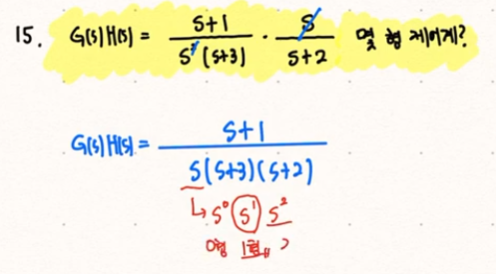 15. G(s)H(s) = \frac{s+1}{s^2(s+3)} \cdot \frac{s}{s+2} 몇 형 제어계?
G(s)H(s) = \frac{s+1}{s(s+3)(s+2)}
↳ s^0 s^1 s^2
0형 1형〃 2